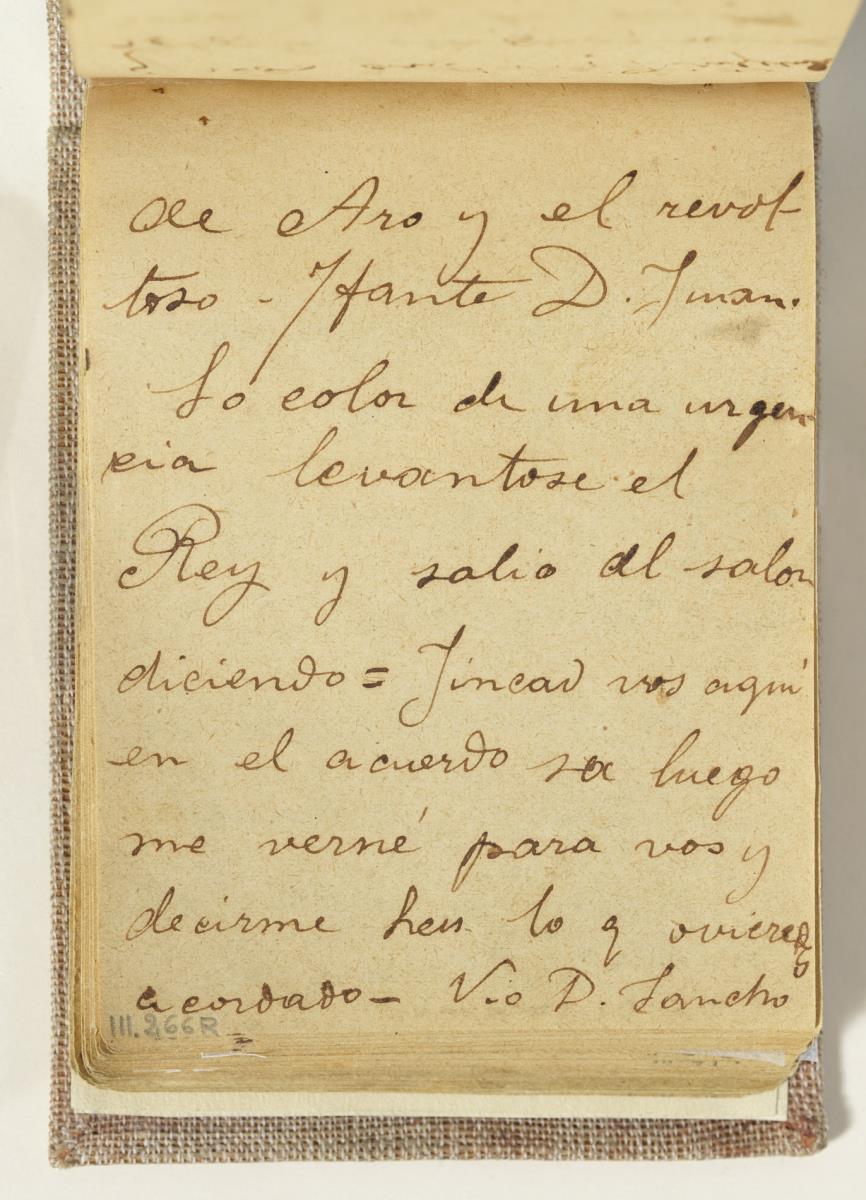 de Aro y el revol-
toso - Ifante D. Juan.
So color de una urgen-
cia levantose el
Rey y salio del salon
diciendo = Fincad vos aqui
en el acuerdo ca luego
me verné para vos y
decirme hen lo q ovieredes
acordado - Vio D. Sancho
III.266R